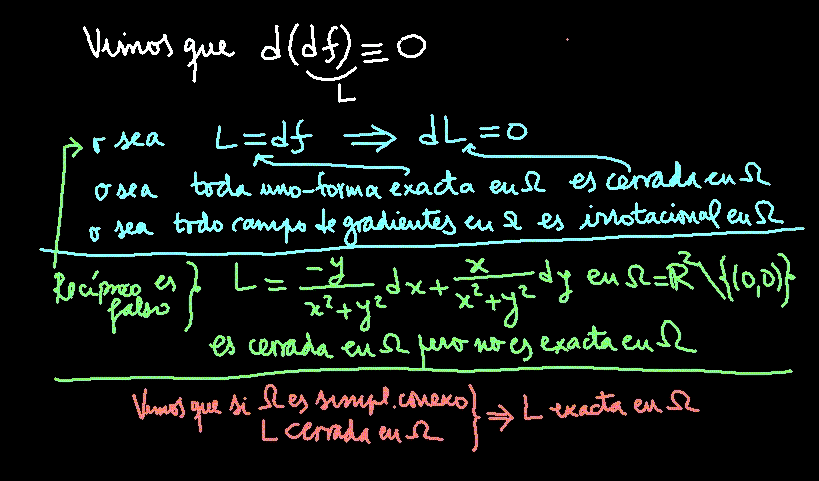 Vimos que d(df) ≡ 0
L
o sea L = df ⟹ dL = 0
o sea toda uno-forma exacta en Ω es cerrada en Ω
o sea todo campo de gradientes en Ω es irrotacional en Ω
Recíproco es falso } L = -y/(x²+y²) dx + x/(x²+y²) dy en Ω = R² \ {(0,0)}
es cerrada en Ω pero no es exacta en Ω
Vimos que si Ω es simpl. conexo
L cerrada en Ω } ⟹ L exacta en Ω